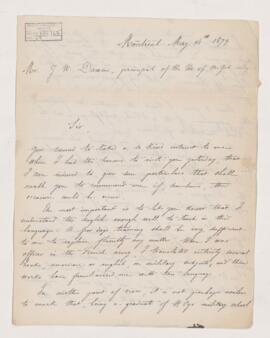 Montreal May 16th 1879
Mr. J. W. Dawson, principal of the Un. of McGill
Sir
You seemed to take a so kind interest to me
When I had the honour to visit you yesterday, that
I am induced to give some particulars that shall
enable you to recommend me if, somehow, the
occasion could be given
The most important is to let you know that I
understand the english enough well to teach in this
language. A few days training shall be very sufficient
to me to explain fluently any matter. When I was
officer in the French army, I translated entirely several
books american or english, on military subjects, and these
works have familiarised me with this language.
In another point of view, it is not perhaps useless
to remark that, being a graduate of St Cyr military school